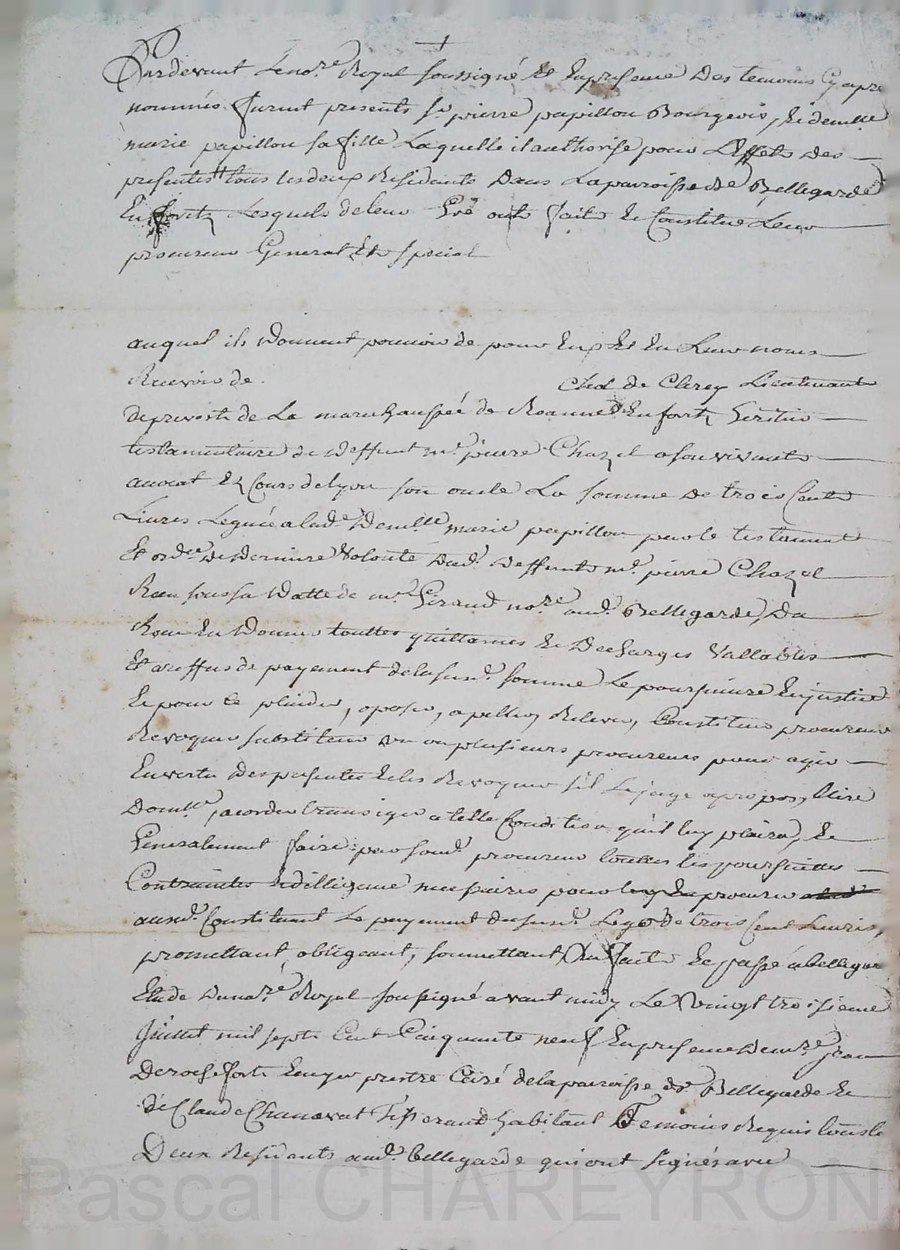 +
Pardevant Le nore Royal soussigné Et En presence Des temoins Cy apre
nommés furent presents sr pierre papillon Bourgeois, Et demlle
marie papillon sa fille Laquelle il authorise pour L'Effet des
presentes tous les deux Residents Dans La paroisse de Bellegarde
En forêt Lesquels de leur Gré ont fait Et Constitué Leur
procureur General Et special
auquel ils Donnent pouvoir de pour Eux Et En Leur noms
Recevoir de Clerey Lieutenant
de prevost de La marechaussée de Roanne En forêt heritier
testamentaire de deffunt mr pierre Chazel a son vivant
avocat Ez Cours de lyon son oncle La somme de trois Cents
Livres Leguée a lade Demlle marie papillon par le testament
Et ordce De Derniere Volonté Dud. Deffunt mr pierre Chazel
Receu sous sa Datte de mr Giraud nore aud. Bellegarde, Du
Receu En Donner touttes quittances Et Descharges Vallables
Et au reffus de payement de la susd. somme Le poursuivre En justice
Et pour Ce plaider, oposer, apeller, Relever, Constituer procureurs
Revoquer substituer un ou plusieurs procureurs pour agir
En vertu Des presentes Et les Revoquer s'il Le juge apropos, Elire
Domlle, acorder transiger a telle Condition qu'il luy plaira, Et
Generalement faire par sond. procureur touttes les poursuittes
Contraintes Et dilligence necessaires pour En procurer
ausd. Constituant Le payement du susd. Legs de trois Cent Livres,
promettant, obligeant, soumettant, fait Et passé a bellegar
Etude Du nore Royal soussigné avant midy Le vingt troisieme
Juillet mil sept Cent Cinquante neuf En presence De mre jean
De rochefort Ecuyer prestre Curé de la paroisse de Bellegarde Et
de Claude Chanavat Tisserand habitant Temoins Requis tous le
Deux Residents aud. bellegarde qui ont signés avec
Pascal CHAREYRON